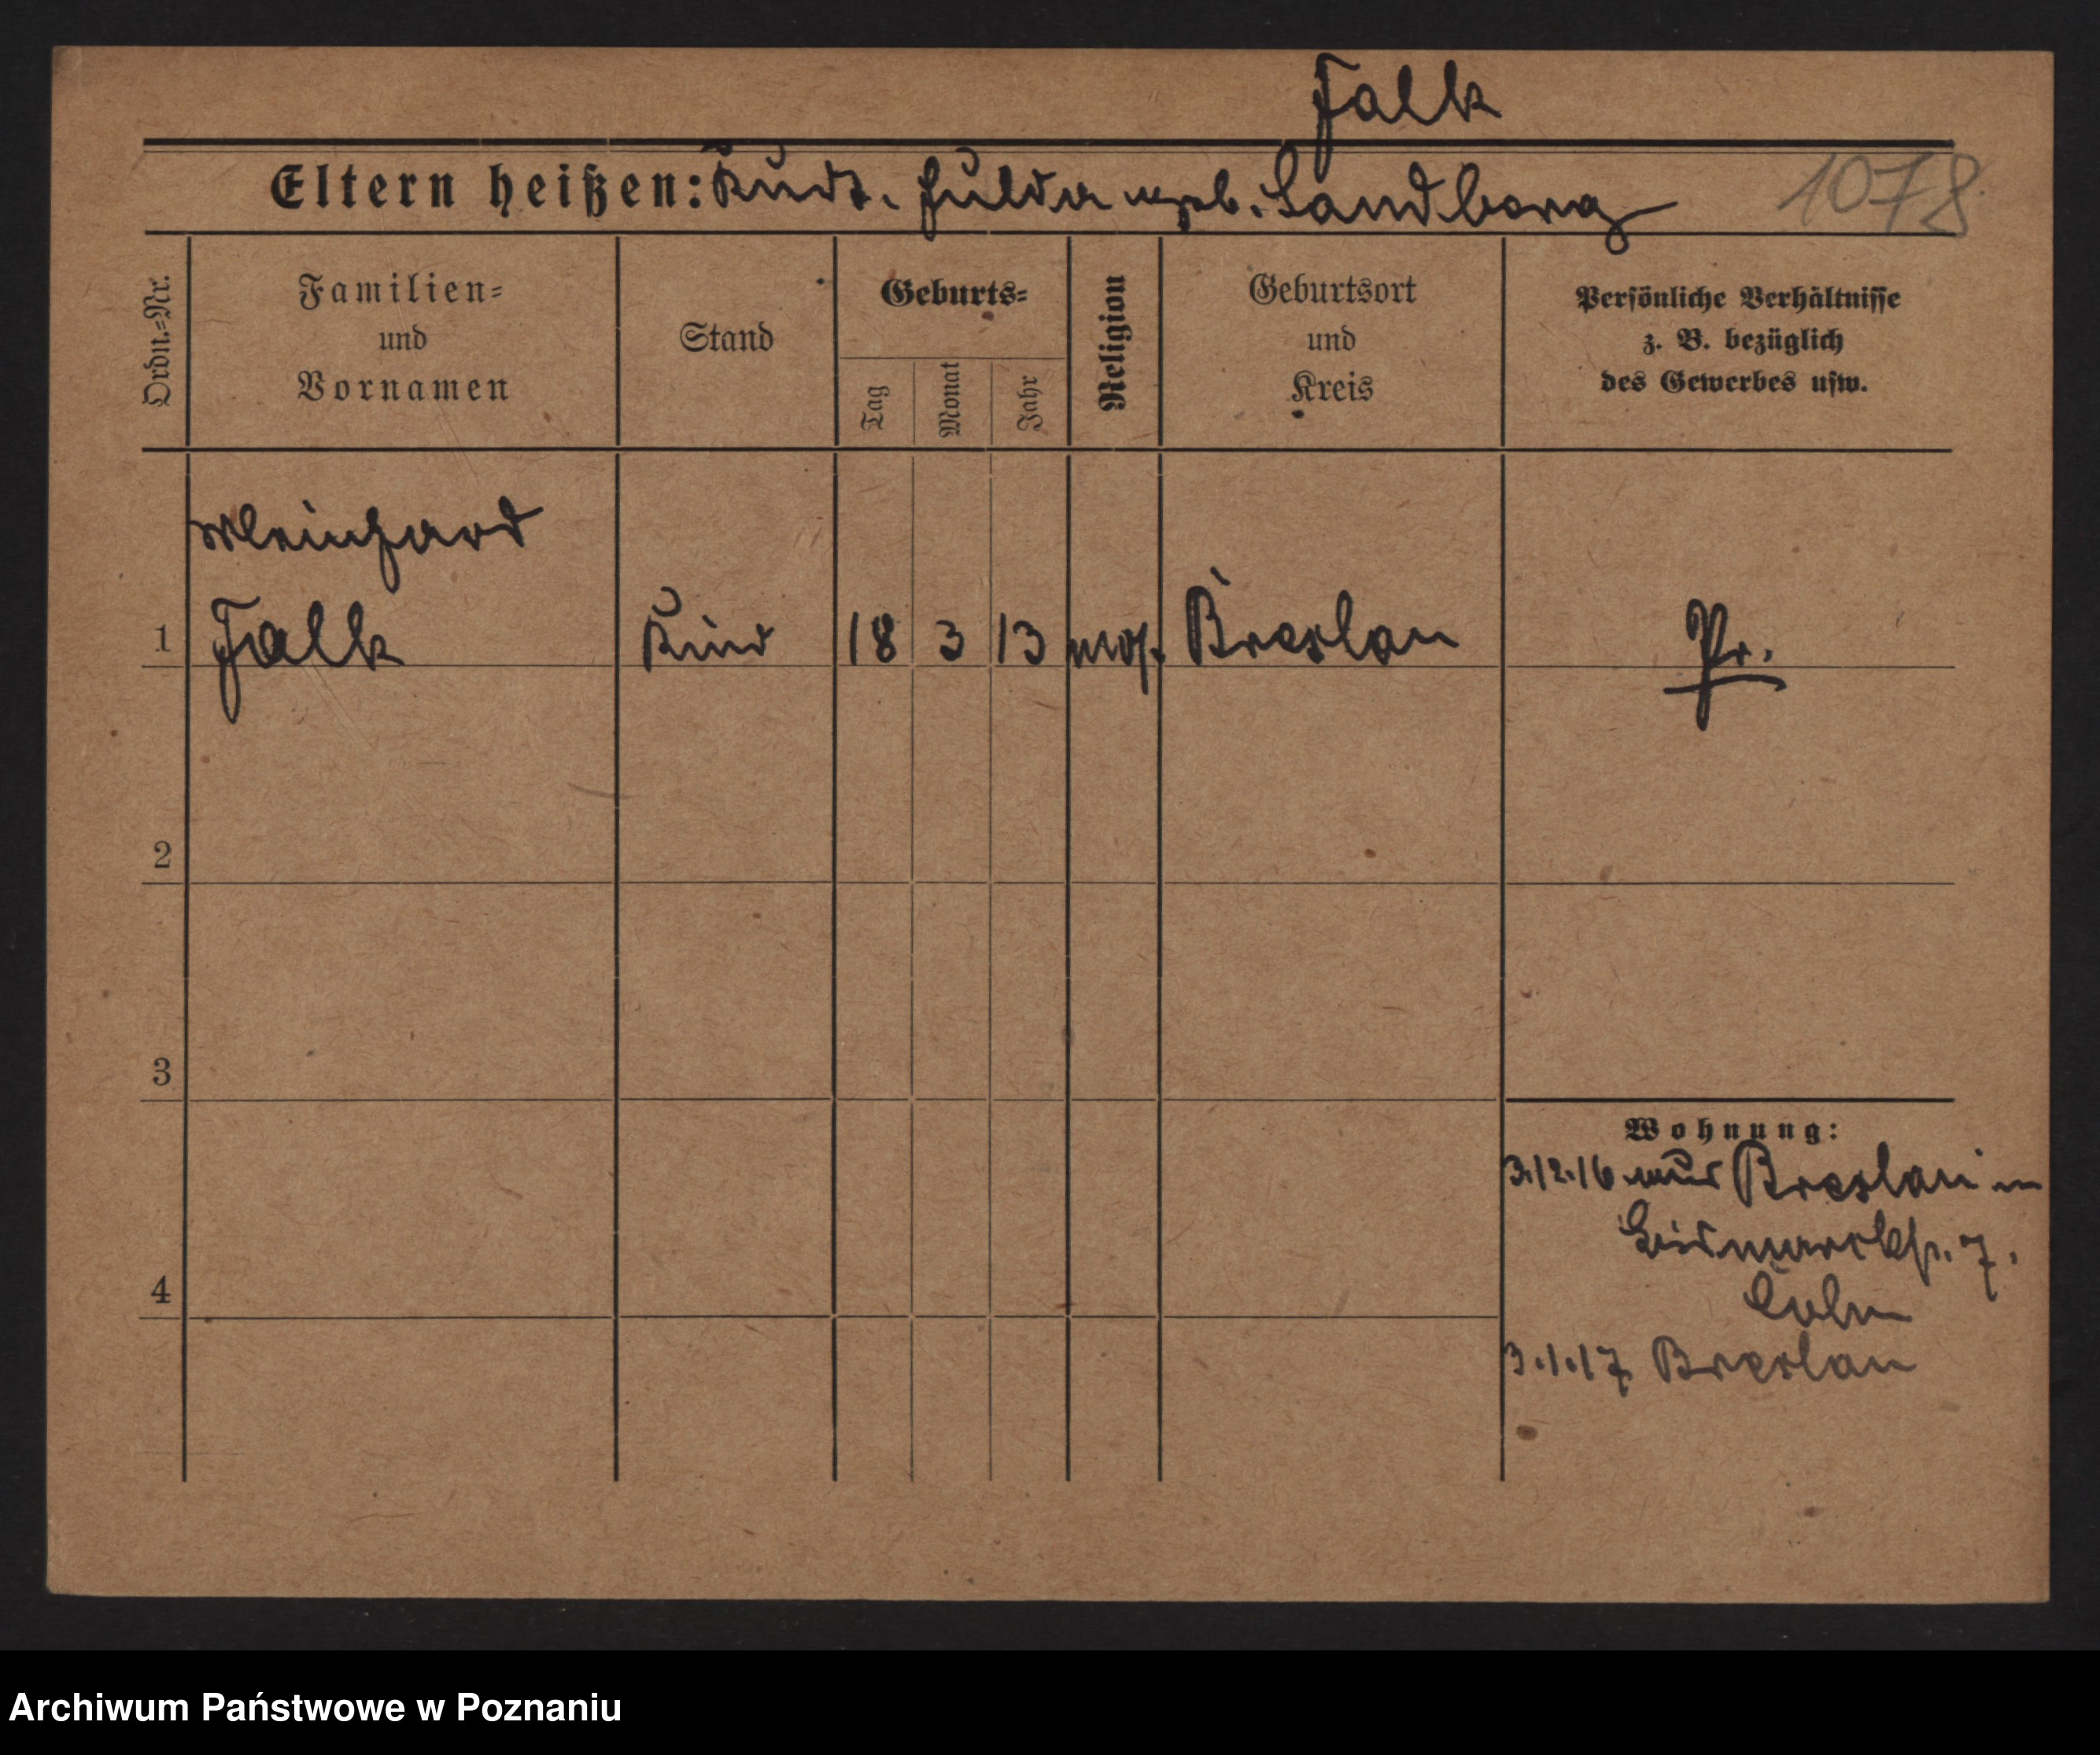 Falk
Eltern heißen: Kurt. Hulda geb. Sandberg
1078
Ordn.=Nr.
Familien=
und
Vornamen
Stand
Geburts=
Tag
Monat
Jahr
Religion
Geburtsort
und
Kreis
Persönliche Verhältnisse
z. B. bezüglich
des Gewerbes usw.
Meinhard
1 Falk Kind 18 3 13 mos. Breslau Pr.
2
3
4
Wohnung:
3.12.16 Breslau
Bismarckstr. 7.
3.1.17 Breslau
Archiwum Państwowe w Poznaniu